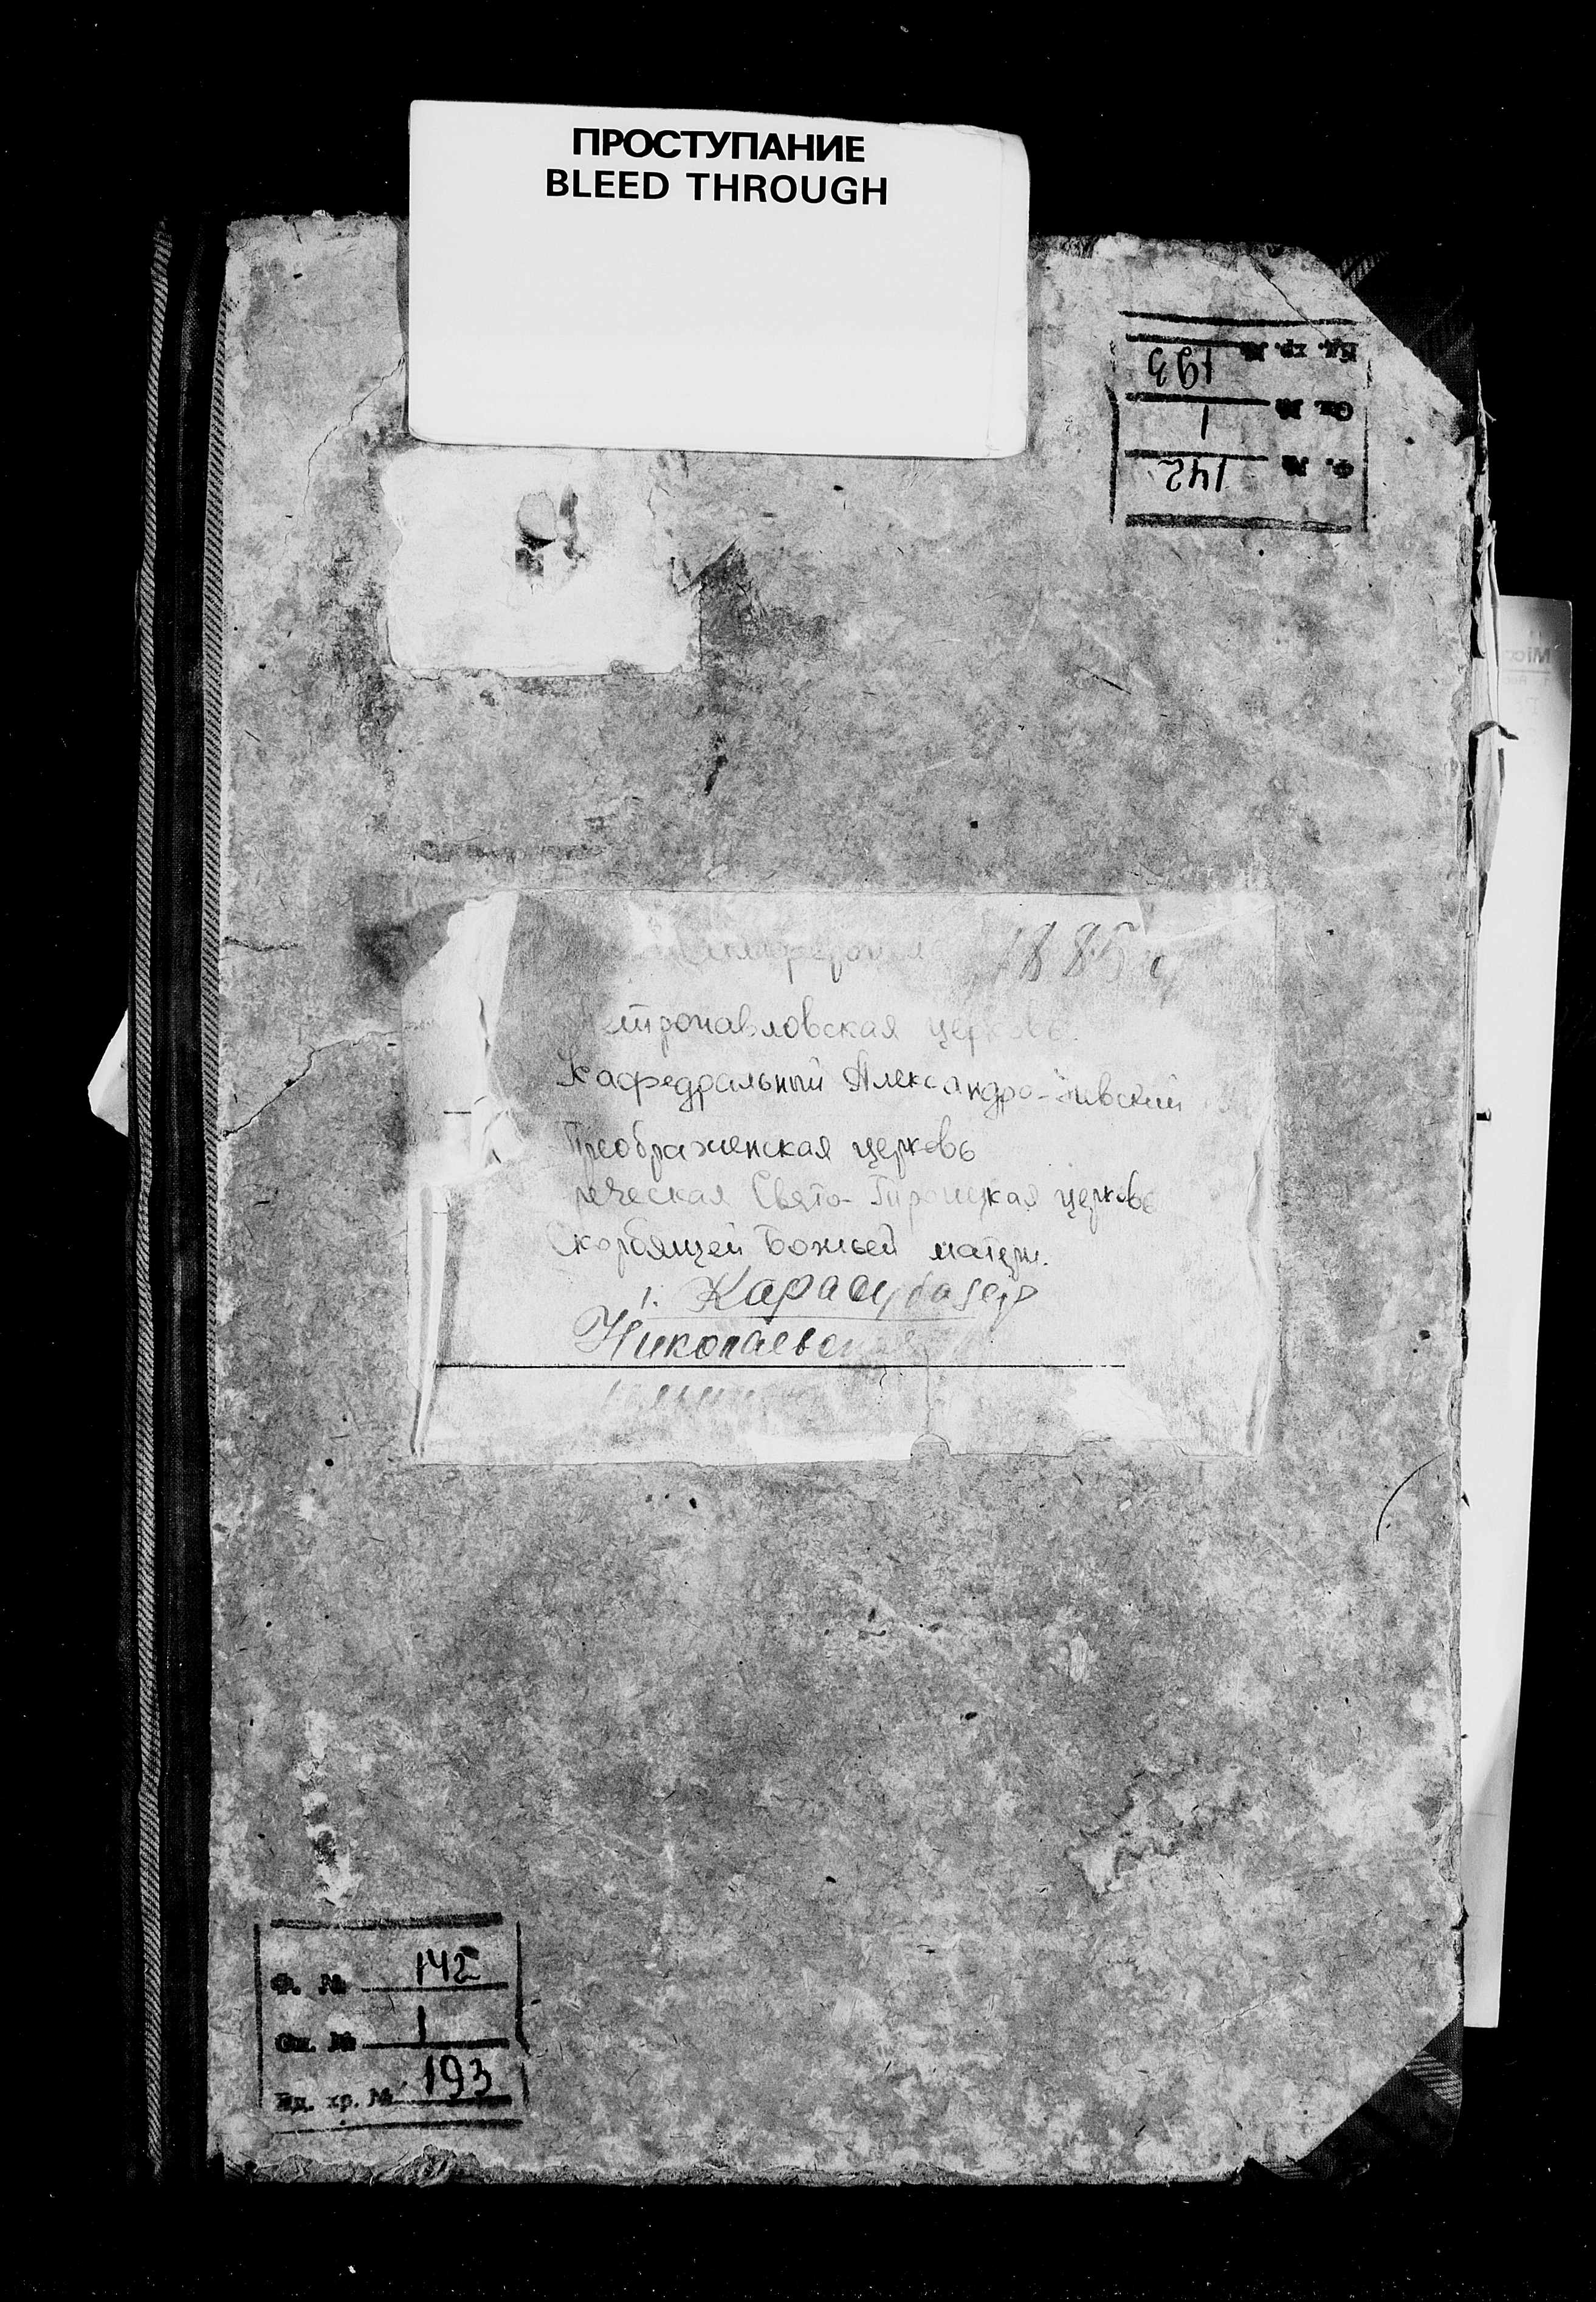 ПРОСТУПАНИЕ
BLEED THROUGH
Ед. хр. № 193
Оп. № 1
Ф. № 142
Симферополь 1885 г
етропавловская церковь
Кафедральный Александро-Невский
Преображенская церковь
реческая Свято-Троицкая церковь
Скорбящей Божьей матери.
г. Карасубазар
Николаевская
Ф. № 142
Оп. № 1
Ед. хр. № 193